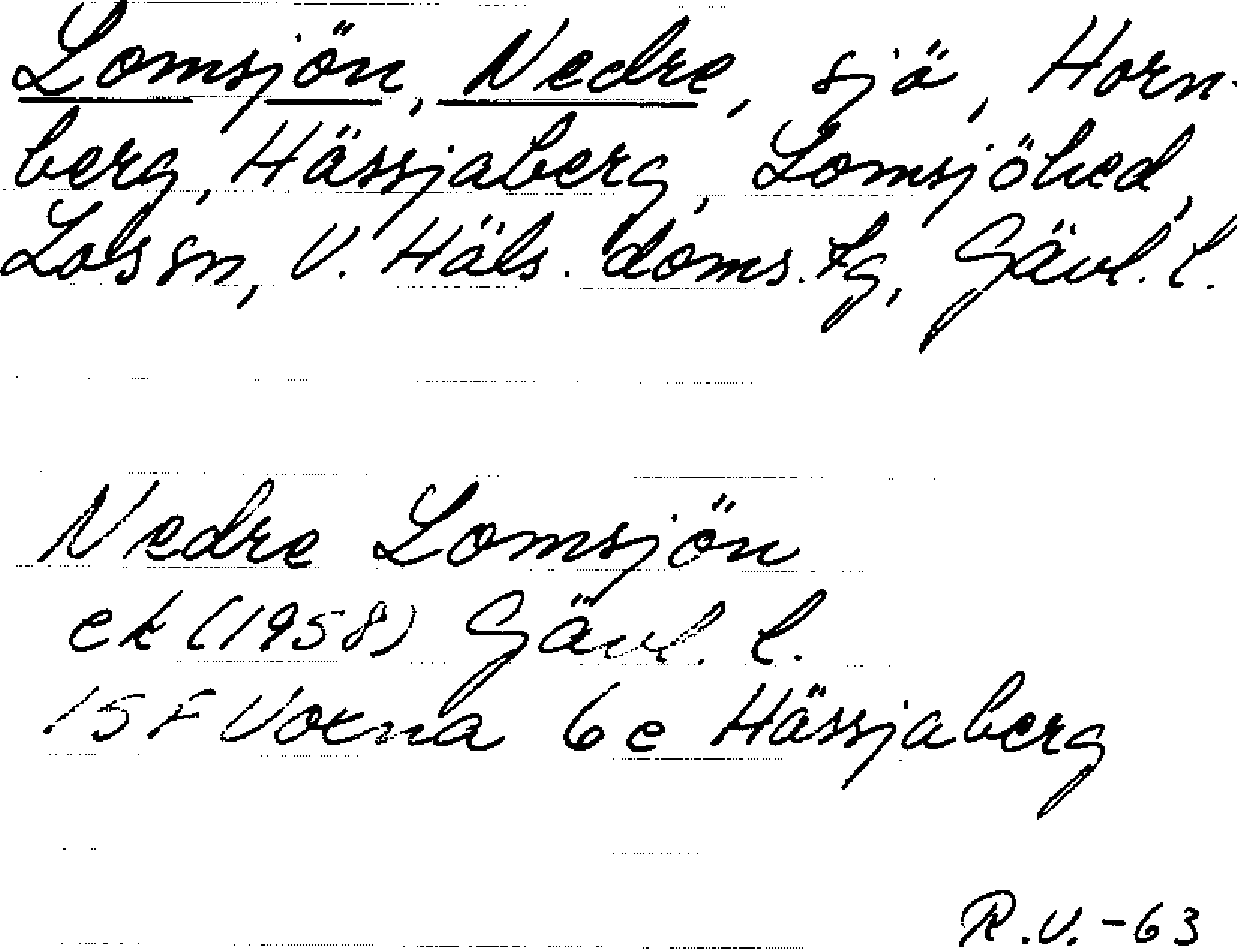 Lomsjön, Nedre, sjö, Horn-
berg, Hässjaberg, Lomsjöhed,
Los sn, V. Häls. doms. tg, Gävl. l.
Nedre Lomsjön
ek (1958) Gävl. l.
15 F Voxna 6 e Hässjaberg
R.V. -63